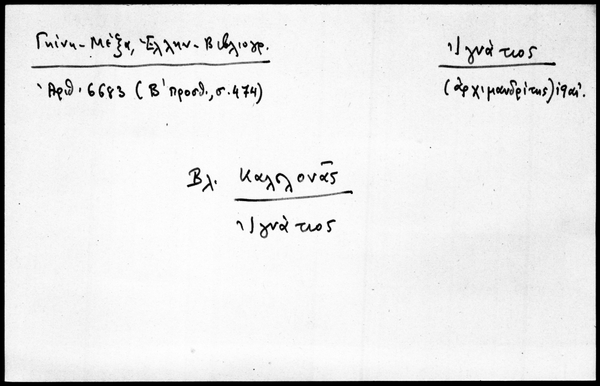 Γκίνη-Μέξα, Ἑλλην-Βιβλιογρ.
Ἰγνάτιος
Ἀριθ. 6683 (Β' προσθ., σ. 474)
(ἀρχιμανδρίτης) ις' αἰ.
Βλ. Καλλονᾶς
Ἰγνάτιος